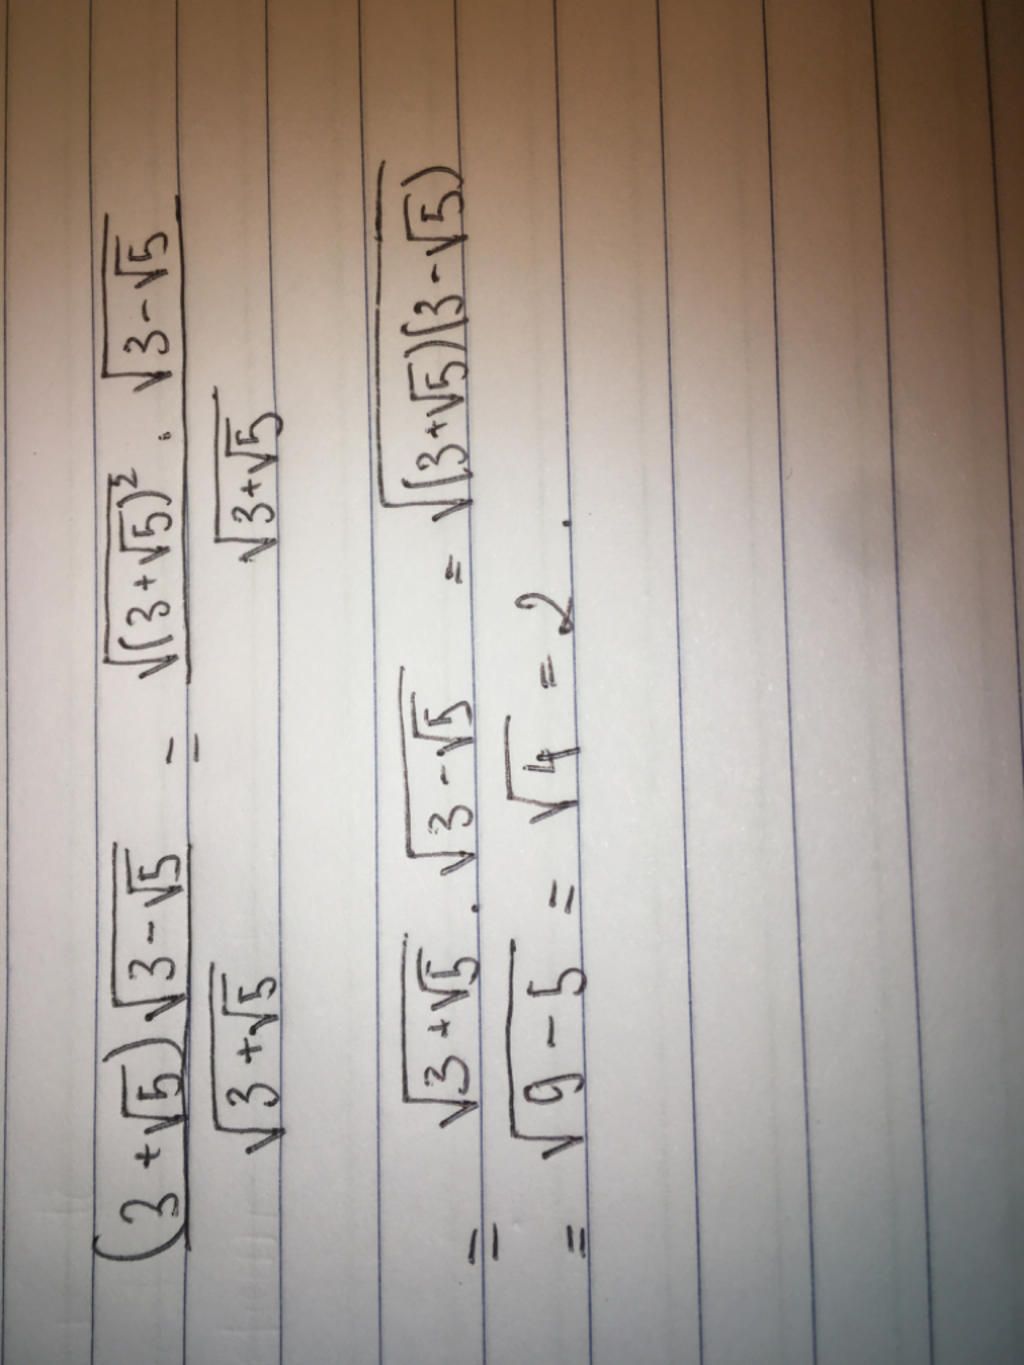 (3+√5)√(3-√5) / √(3+√5) = √((3+√5)²) · √(3-√5) / √(3+√5)
= √(3+√5) · √(3-√5) = √((3+√5)(3-√5))
= √(9-5) = √4 = 2.